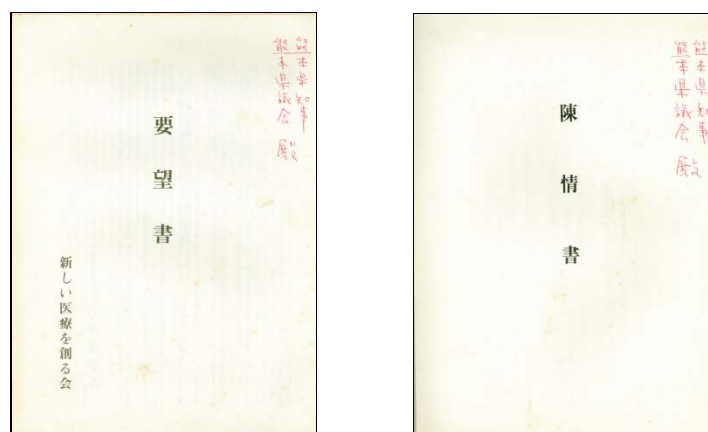 熊本県知事
熊本県議会 殿
要望書
新しい医療を創る会
熊本県知事
熊本県議会 殿
陳情書